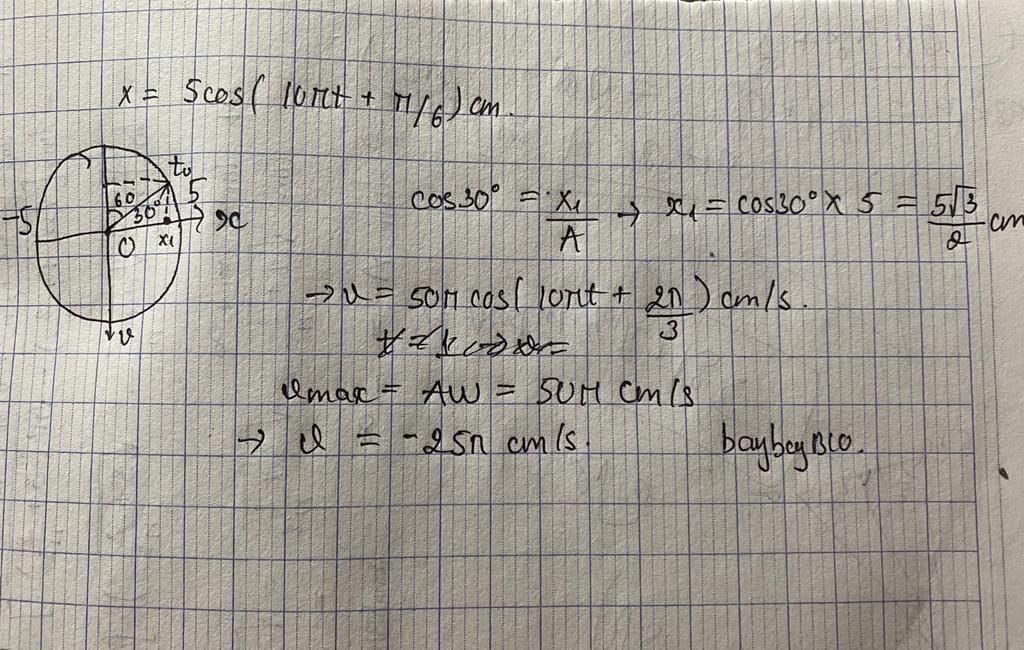 x = 5cos( 10πt + π/6) cm.
t₀
60
5
-5
30°
x
O
x₁
v
cos30° = x₁/A → x₁ = cos30° x 5 = 5√3/2 cm
→ v = 50π cos( 10πt + 2π/3 ) cm/s.
vmax = AW = 50π cm/s
→ v = -25π cm/s.
bayboyBLO.